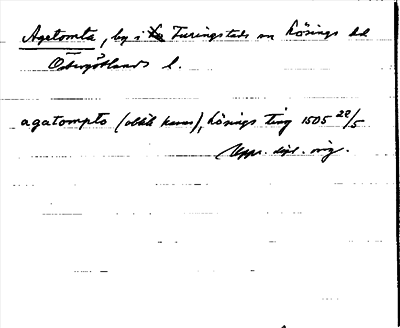 Agetomta, by i Furingstads sn Lösings hd
Östergötlands l.
agatompto (), Lösings ting 1505 22/5
Uppr. dipl. orig.